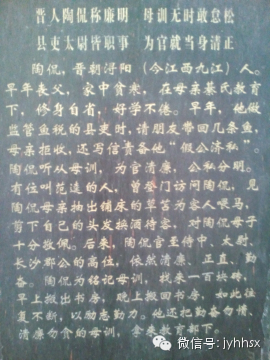 晋人陶侃称廉明 母训无时敢怠松
县吏太尉皆职事 为官就当身清正
陶侃，晋朝浔阳（今江西九江）人。
早年丧父，家中贫寒，在母亲湛氏教育
下，修身自省，好学不倦。早年，他做
监管鱼税的县吏时，请朋友带回几条鱼，
母亲拒收，还写信责备他“假公济私”。
陶侃听从母训，为官清廉，公私分明。
有位叫范逵的人，曾登门访问陶侃，见
陶侃母亲抽出铺床的草苫为客人喂马，
剪下自己的头发换酒待客，对陶侃母子
十分敬佩。后来，陶侃官至侍中、太尉、
长沙郡公的高位，依然清廉、正直、勤
奋。陶侃为铭记母训，找来一百块砖，
早上搬出书房，晚上搬回书房，如此往
复不断，以励志勤力。他还把勤奋句惜、
清廉勿贪的母训，拿来教育部下。
微信号：jyhhsx